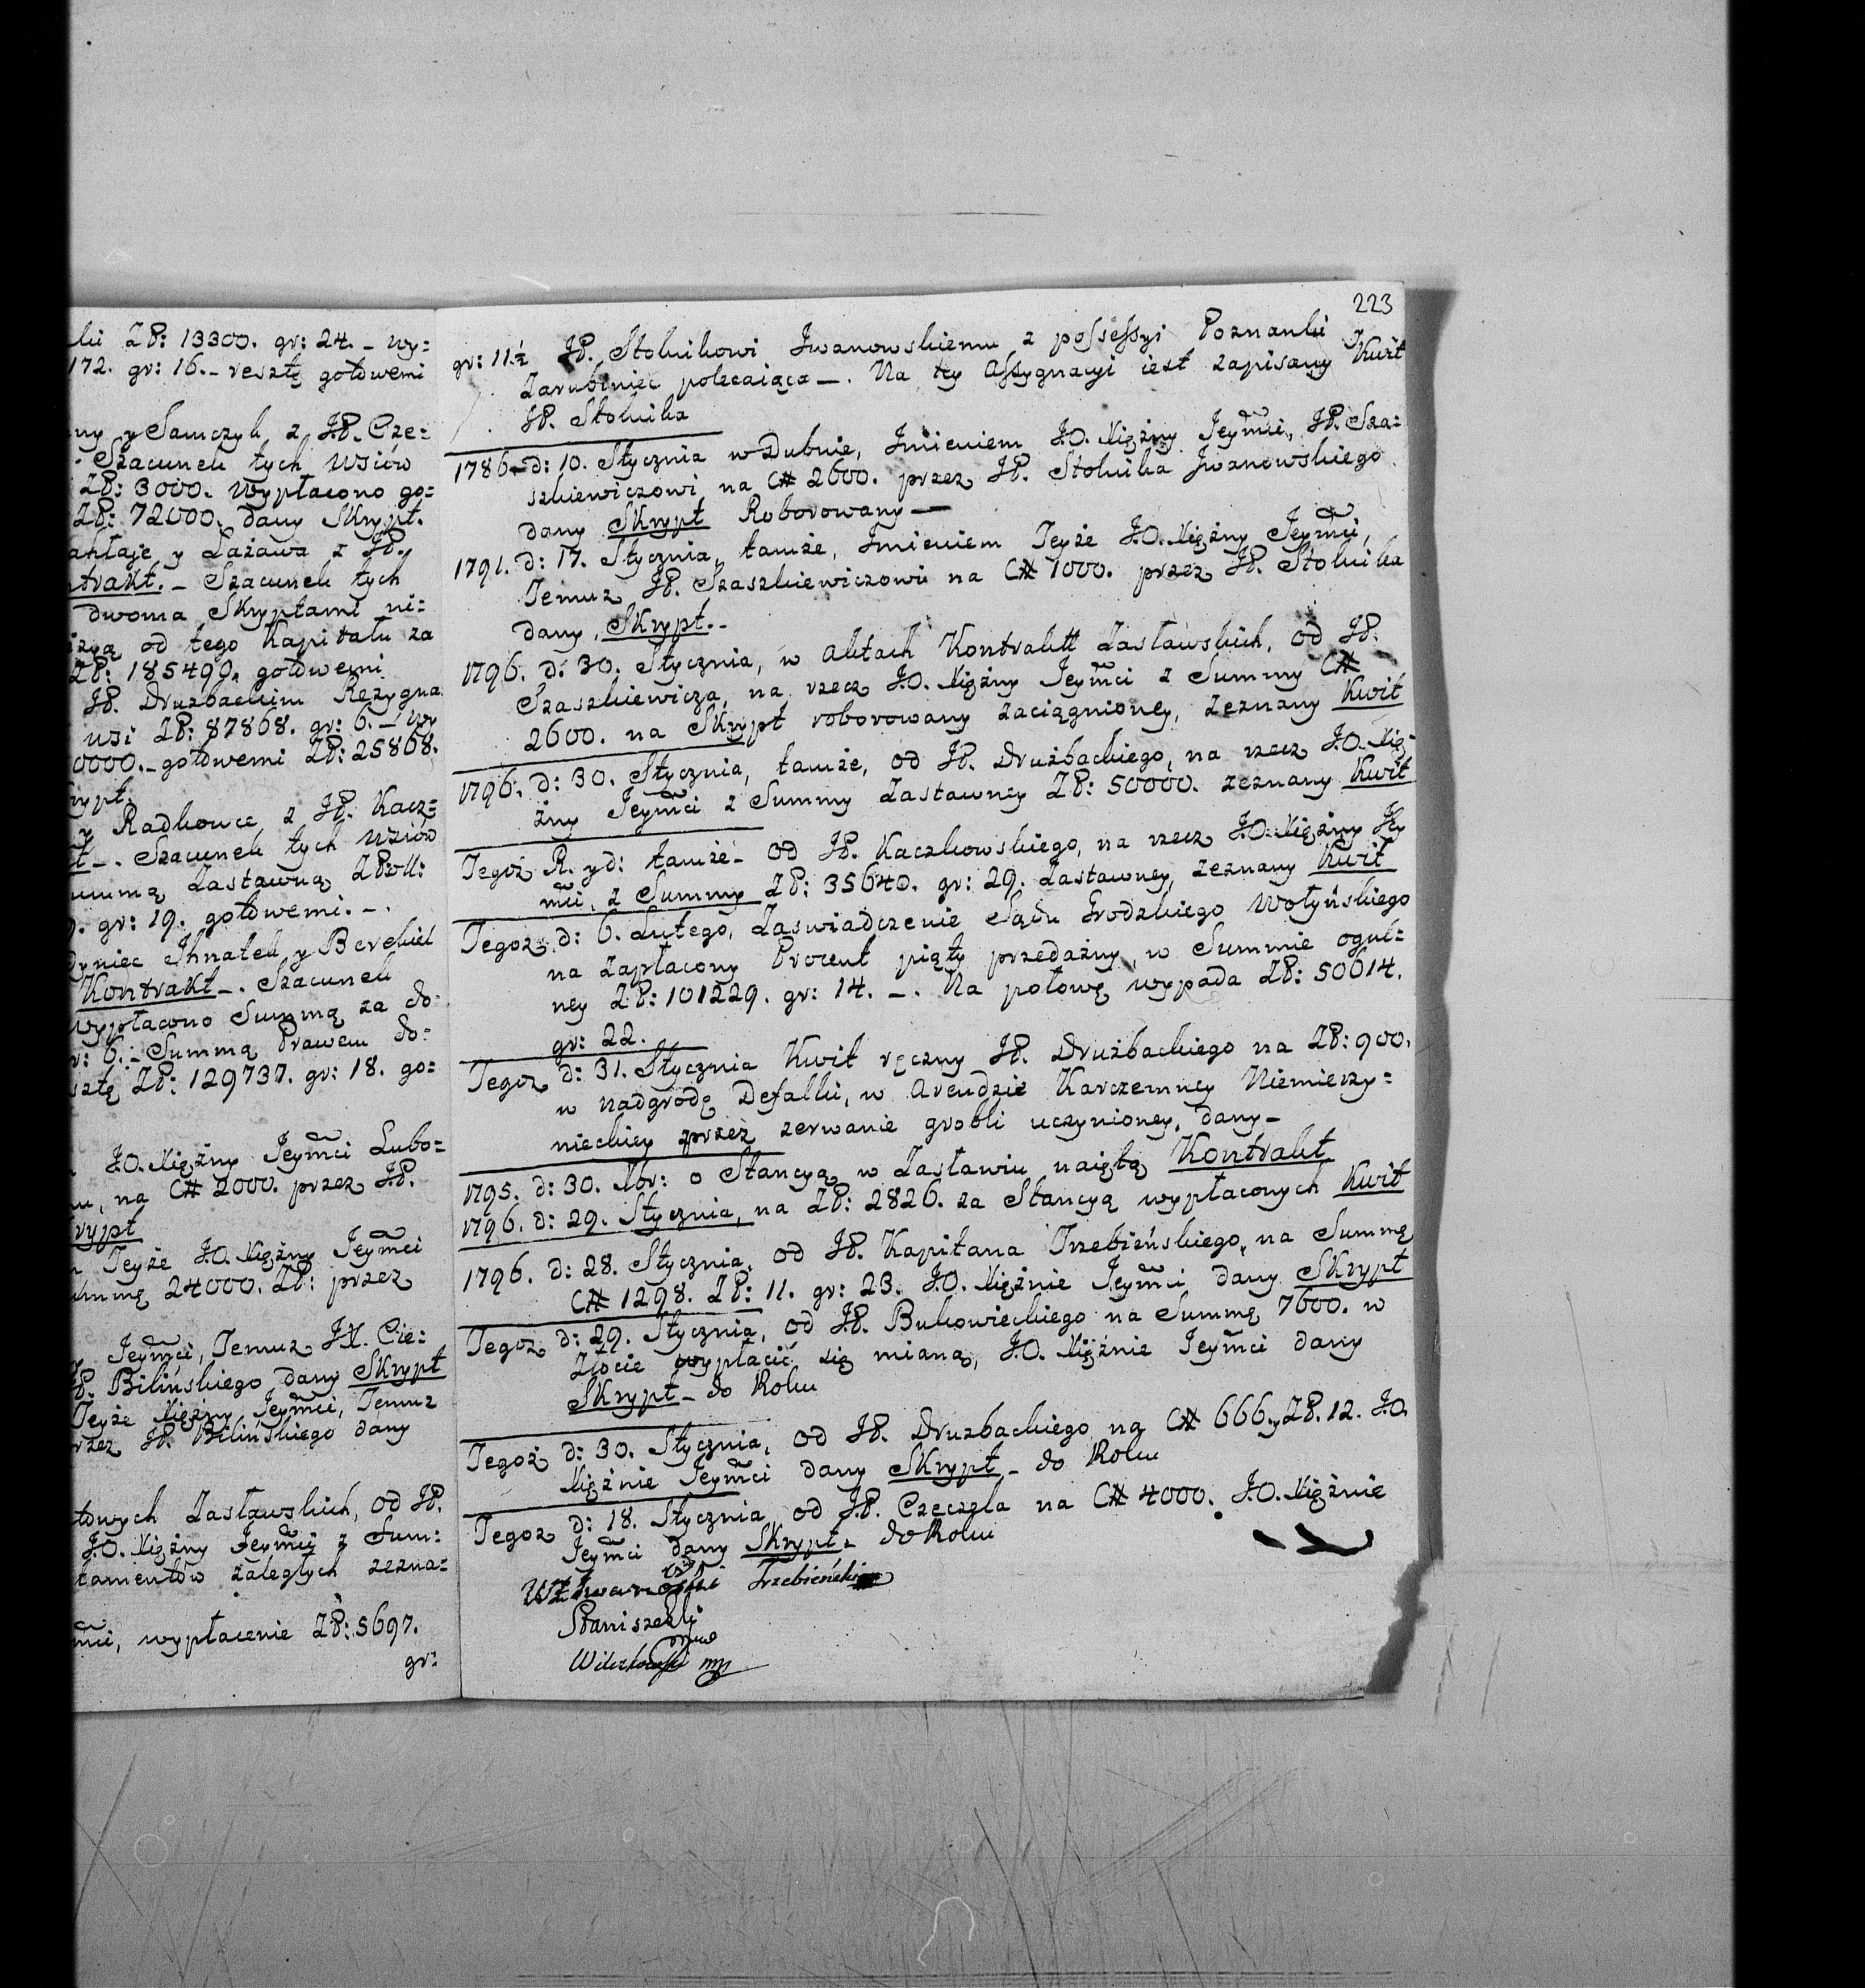 ki ZP: 13300. gr: 24. _ wy=
172. gr: 16. _ resztę gotowemi
ny y Samczyk z JP. Cze=
Szacunek tych Wsiów
ZP: 3000. Wypłacono go=
ZP: 72000. dany Skrypt.
y Łazawa z JP.
ntrakt. _ Szacunek tych
dwoma Skryptami ni=
od tego Kapitału za
ZP: 185490. gotowemi
JP. Druzbackim Rezygna
wsi ZP: 87868. gr: 6. _ wy
0000. _ gotowemi ZP: 25868.
rypt.
y Radkowce z JP. Kacz=
kt _. Szacunek tych Wsiów
ummą Zastawną ZPoll:
9. gr: 19. gotowemi. _.
Ihnatek y Berekiel
Kontrakt _. Szacunek
wypłacono Summą za do=
r: 6. _ Summą Prawem do=
sztę ZP: 129737. gr: 18. go=
J.O. Xiężny Jeymci Lubo=
na C# 2000. przez JP.
rypt
Teyże J.O. Xiężny Jeymci
ummę 24000. ZP: przez
Jeymci, Temuz JX. Cie=
P. Bilińskiego dany Skrypt
Teyże Xiężny Jeymci, Temuz
rzez JP. Bilińskiego dany
towych Zasławskich, od JP.
J.O. Xiężny Jeymci z Sum=
tamentów zaległych zezna=
mci, wypłacenie ZP: 5697.
gr:
223
gr: 11.½ JP. Stolnikowi Jwanowskiemu z possessyi Poznanki y
Zarubiniec polecaiąca _. Na tey Assygnacyi iest zapisany Kwit
JP. Stolnika
1786. d: 10. Stycznia w Dubnie, Jmieniem J.O. Xiężny Jeymci, JP. Sza=
szkiewiczowi na C# 2600. przez JP. Stolnika Jwanowskiego
dany Skrypt Roborowany _
1791. d: 17. Stycznia, tamże, Jmieniem Teyże J.O. Xiężny Jeymci,
Temuz JP. Szaszkiewiczowi na C# 1000. przez JP. Stolnika
dany, Skrypt. _
1796. d: 30. Stycznia, w Aktach Kontraktt Zasławskich, od JP.
Szaszkiewicza, na rzecz J.O. Xiężny Jeymci z Summy C#
2600. na Skrypt roborowany zaciągnioney, zeznany Kwit
1796. d: 30. Stycznia, tamże, od JP. Drużbackiego, na rzecz J.O. Xię=
żny Jeymci z Summy Zastawney ZP: 50000. zeznany Kwit
Tegoż R. y d: tamże _ od JP. Kaczkowskiego, na rzecz J.O. Xiężny Jey
mci, z Summy ZP: 35640. gr: 29. Zastawney, zeznany Kwit
Tegoz d: 6. Lutego, Zaswiadczenie Sądu Grodzkiego Wołyńskiego
na Zapłacony Procent piąty przedażny, w Summie ogul=
ney ZP: 101229. gr: 14. _. Na połowę wypada ZP: 50614.
gr: 22.
Tegoz d: 31. Stycznia Kwit ręczny JP. Drużbackiego na ZP: 900.
w nadgrodę Defalki, w Arendzie Karczemney Niemierzy=
nieckiey przez zerwanie grobli uczynioney, dany _
1795. d: 30. Xbr: o Stancyą w Zasławiu naiętą Kontrakt
1796. d: 29. Stycznia, na ZP: 2826. za Stancyą wypłaconych Kwit
1796. d: 28. Stycznia, od JP. Kapitana Trzebieńskiego, na Summę
C# 1298. ZP: 11. gr: 23. J.O. Xiężnie Jeymci dany Skrypt
Tegoz d: 29. Stycznia, od JP. Bukowieckiego na Summę 7600. w
Złocie wypłacić się mianą, J.O. Xiężnie Jeymci dany
Skrypt _ do Roku
Tegoż d: 30. Stycznia, od JP. Druzbackiego na C# 666. y ZP. 12. J.O.
Xiężnie Jeymci dany Skrypt _ do Roku
Tegoz d: 18. Stycznia, od JP. Czeczela na C# 4000. J.O. Xiężnie
Jeymci dany Skrypt _ do Roku
Trzebieński
Staniszewski